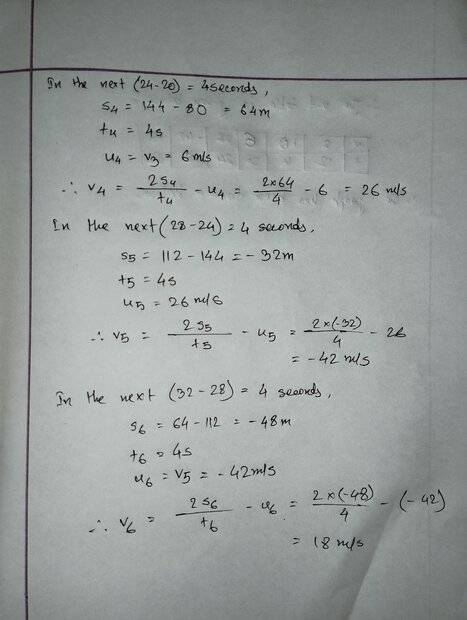 In the next (24-20) = 4 seconds,
s4 = 144 - 80 = 64m
t4 = 4s
u4 = v3 = 6 m/s
∴ v4 = 2s4/t4 - u4 = 2×64/4 - 6 = 26 m/s
In the next (28-24) = 4 seconds,
s5 = 112 - 144 = -32m
t5 = 4s
u5 = 26 m/s
∴ v5 = 2s5/t5 - u5 = 2×(-32)/4 - 26
= -42 m/s
In the next (32-28) = 4 seconds,
s6 = 64-112 = -48m
t6 = 4s
u6 = v5 = -42m/s
∴ v6 = 2s6/t6 - u6 = 2×(-48)/4 - (-42)
= 18 m/s